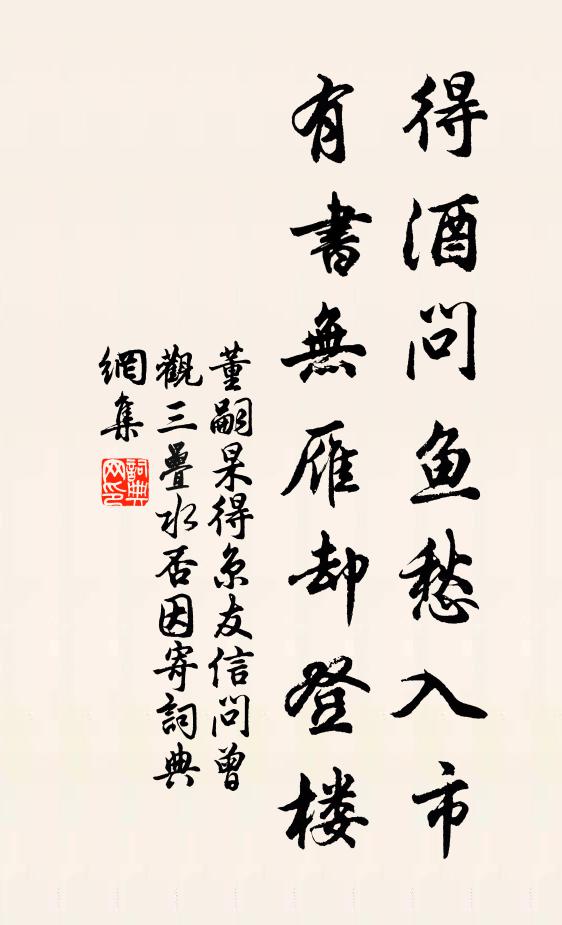 得酒问鱼愁入市
有書無雁却登楼
董嗣杲得京友信問曾
觀三疊水否因寄詞典
網集
詞典網印